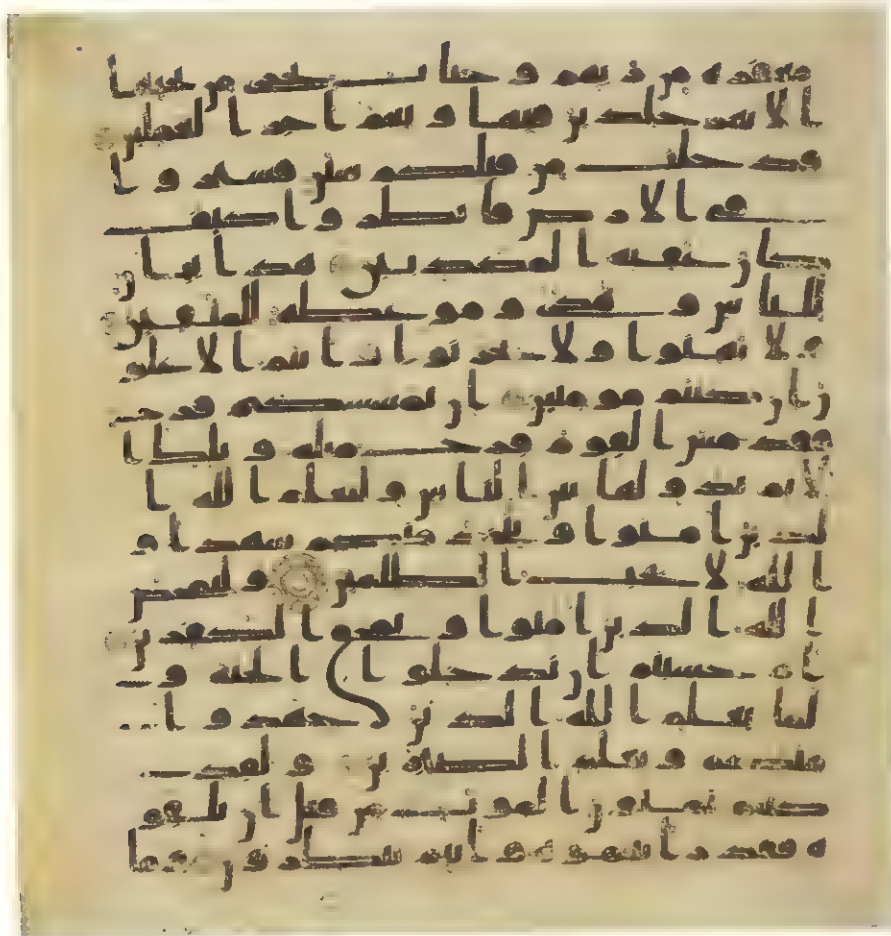 مغفرة من ربهم وجنات تجري من تحتها
الانهر خلدين فيها ونعم اجر العملين
قد خلت من قبلكم سنن فسيروا
في الارض فانظروا كيف
كان عقبة المكذبين هذا بيان
للناس وهدى وموعظة للمتقين
ولا تهنوا ولا تحزنوا وانتم الاعلو
ن ان كنتم مومنين ان يمسسكم قرح
فقد مس القوم قرح مثله وتلك ا
لايام نداولها بين الناس وليعلم الله ا
لذين امنوا ويتخذ منكم شهدا و
الله لا يحب الظلمين وليمحص
الله الذين امنوا ويمحق الكفرين
ام حسبتم ان تدخلوا الجنة و
لما يعلم الله الذين جهدوا
منكم ويعلم الصبرين ولقد
كنتم تمنون الموت من قبل ان تلقو
ه فقد رايتموه وانتم تنظرون وما